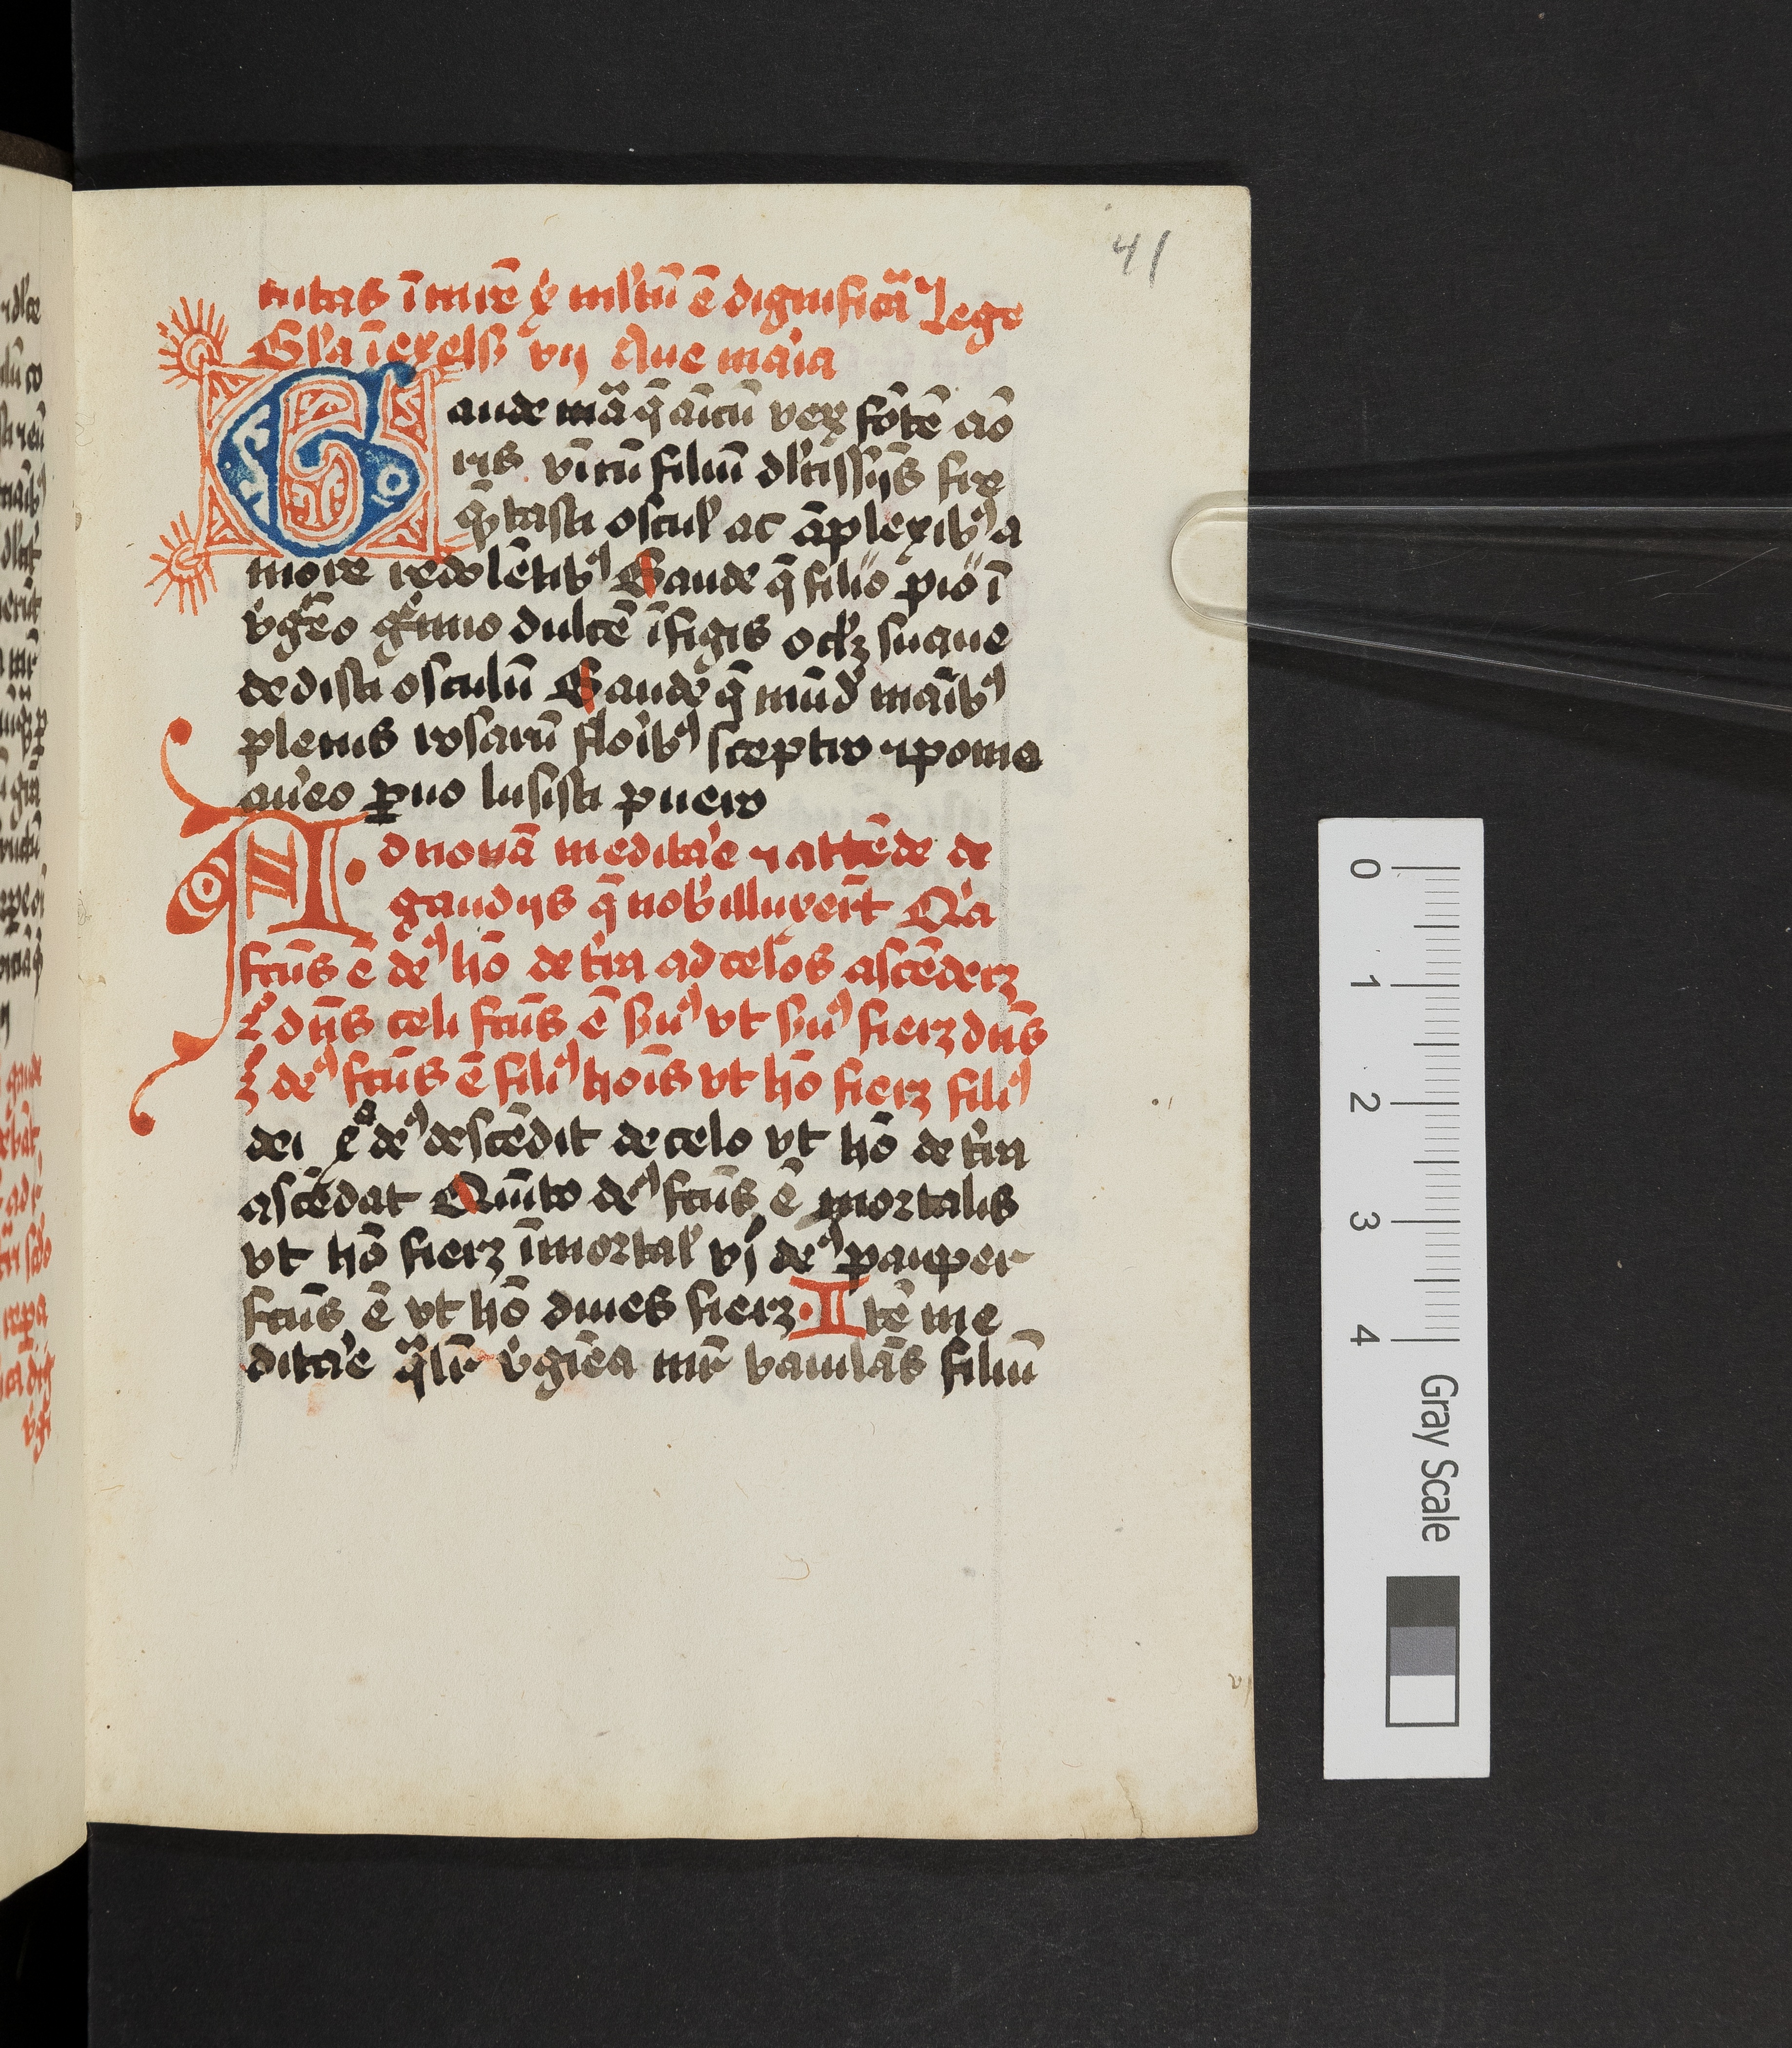 41
nitas ī mīrē ꝟ mltū ē dignificā Lege
Glā ī exels vij Aue maīa
Gaude mā q̄ aīcū ver fōtē aō
ris vnicū filiū dlcissijs
q̄ tasti oscul ac āplexibꝰ a
more redolētibꝰ Gaude q̄ filio pio ī
vgēo gͥmio dulcē īfigis oclꝫ suaue
dedisti osculū Gaude q̄ mūd manibꝰ
plenis rosarū floribꝰ sceptro ⁊ pomo
aureo ꝑuo lusisti puero
Ad nonā meditare ⁊ attēde de
gaudijs q̄ nob illuxerūt Qͥa
fcūs ē deꝰ hō de tr̄a ad celos ascēderꝫ
2º dn̄s celi fcūs ē suꝰ vt suꝰ fierꝫ dn̄s
3 deꝰ fcūs ē filiꝰ hoīs vt hō fierꝫ filiꝰ
dei 4º deꝰ descēdit de celo vt hō de tr̄a
ascēdat Quīto deꝰ fcūs ē mortalis
vt hō fierꝫ īmortal vj deꝰ pauper
fcūs ē vt hō diues fierꝫ · Itē me
ditare q̄lr vgīea mr̄ baiulās filiū
0
1
2
3
4
Gray Scale